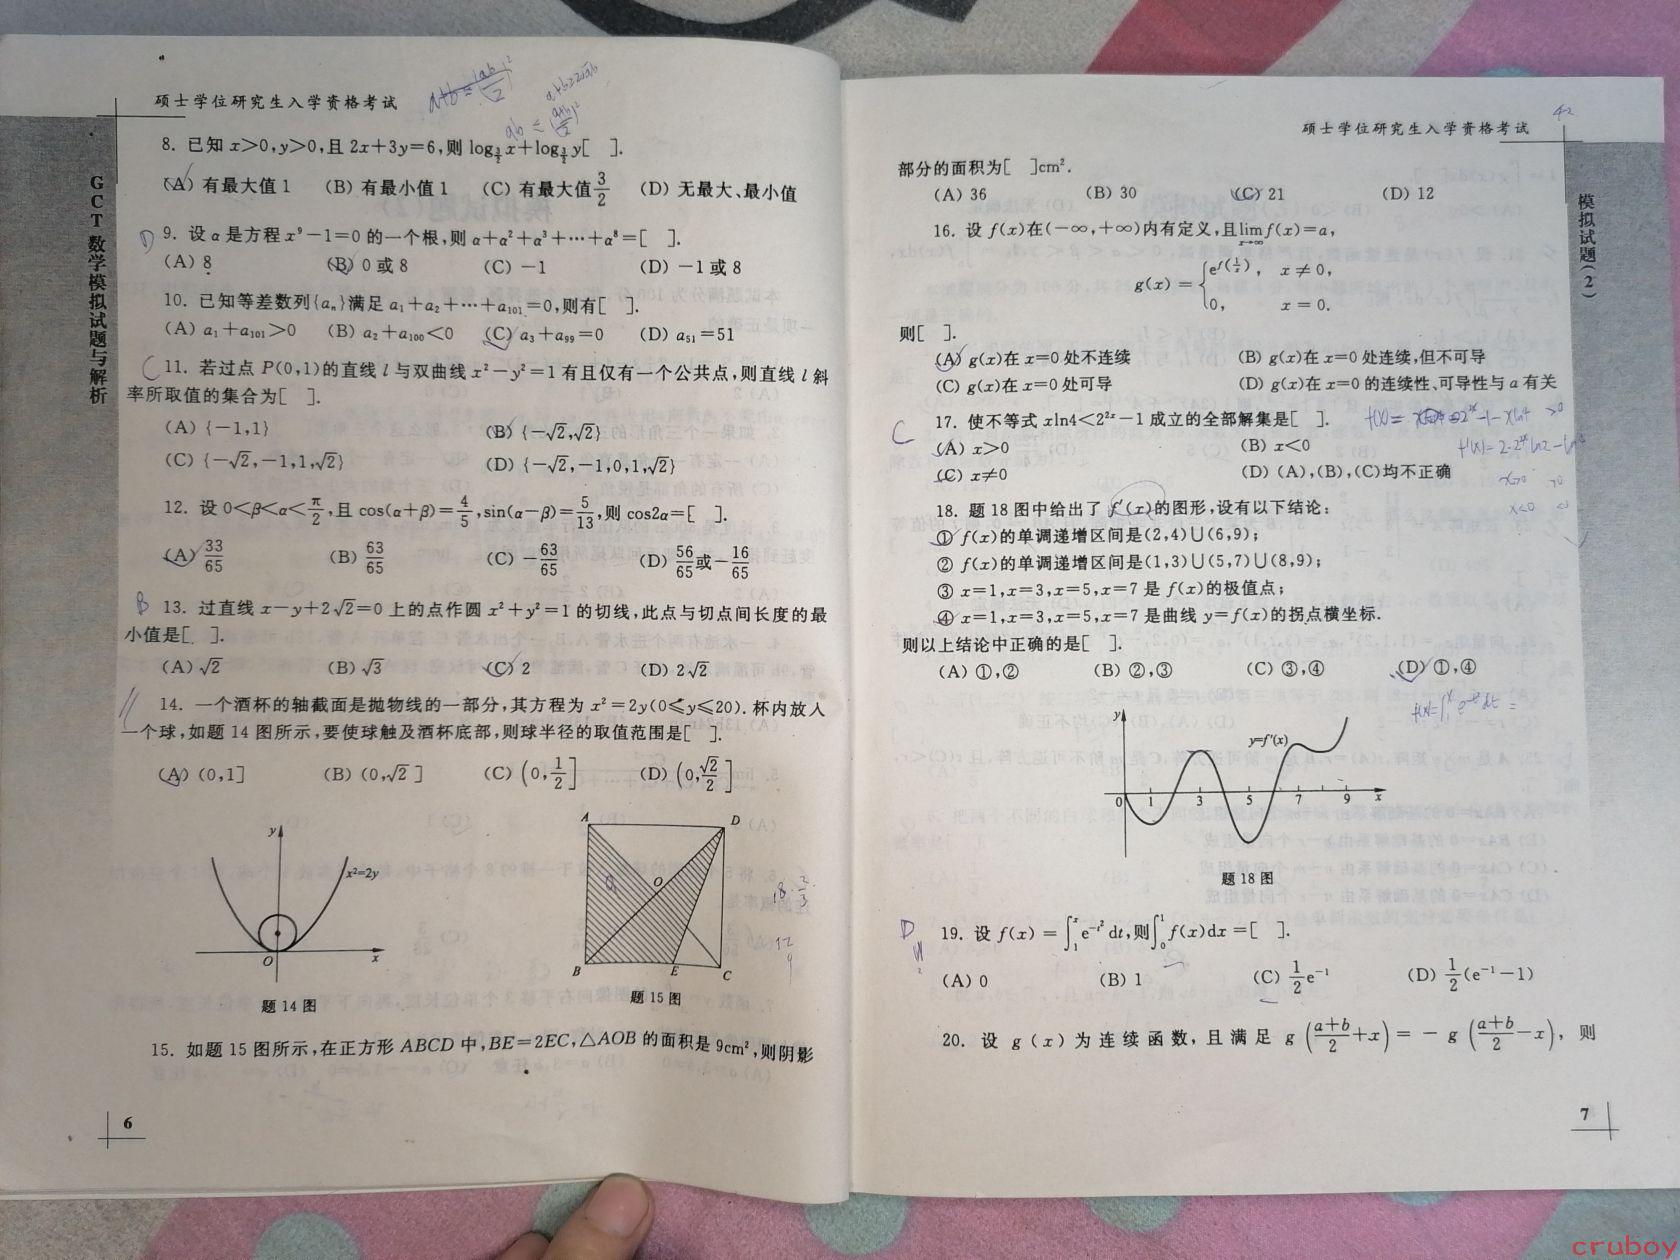 硕士学位研究生入学资格考试
GCT数学模拟试题与解析
8. 已知 x>0,y>0,且 2x+3y=6,则 log_{3/2} x+log_{3/2} y[ ].
(A) 有最大值 1 (B) 有最小值 1 (C) 有最大值 3/2 (D) 无最大、最小值
D 9. 设 α 是方程 x⁹-1=0 的一个根,则 α+α²+α³+…+α⁸=[ ].
(A) 8 (B) 0 或 8 (C) -1 (D) -1 或 8
10. 已知等差数列{aₙ}满足 a₁+a₂+…+a₁₀₁=0,则有[ ].
(A) a₁+a₁₀₁>0 (B) a₂+a₁₀₀<0 (C) a₃+a₉₉=0 (D) a₅₁=51
C 11. 若过点 P(0,1)的直线 l 与双曲线 x²-y²=1 有且仅有一个公共点,则直线 l 斜
率所取值的集合为[ ].
(A) {-1,1} (B) {-√2,√2}
(C) {-√2,-1,1,√2} (D) {-√2,-1,0,1,√2}
12. 设 0<β<α<π/2,且 cos(α+β)=4/5,sin(α-β)=5/13,则 cos2α=[ ].
(A) 33/65 (B) 63/65 (C) -63/65 (D) 56/65或-16/65
B 13. 过直线 x-y+2√2=0 上的点作圆 x²+y²=1 的切线,此点与切点间长度的最
小值是[ ].
(A) √2 (B) √3 (C) 2 (D) 2√2
14. 一个酒杯的轴截面是抛物线的一部分,其方程为 x²=2y(0≤y≤20). 杯内放入
一个球,如题 14 图所示,要使球触及酒杯底部,则球半径的取值范围是[ ].
(A) (0,1] (B) (0,√2] (C) (0,1/2] (D) (0,√2/2]
y
x²=2y
O
x
题 14 图
A
D
O
B
E
C
题 15 图
15. 如题 15 图所示,在正方形 ABCD 中,BE=2EC,△AOB 的面积是 9cm²,则阴影
6
硕士学位研究生入学资格考试
模拟试题(2)
部分的面积为[ ]cm².
(A) 36 (B) 30 (C) 21 (D) 12
16. 设 f(x)在(-∞,+∞)内有定义,且lim_{x→∞} f(x)=a,
g(x)={e^{f(1/x)}, x≠0,
0, x=0.
则[ ].
(A) g(x)在 x=0 处不连续 (B) g(x)在 x=0 处连续,但不可导
(C) g(x)在 x=0 处可导 (D) g(x)在 x=0 的连续性、可导性与 a 有关
C 17. 使不等式 xln4<2²ˣ-1 成立的全部解集是[ ].
(A) x>0 (B) x<0
(C) x≠0 (D) (A),(B),(C)均不正确
18. 题 18 图中给出了 f′(x)的图形,设有以下结论:
① f(x)的单调递增区间是(2,4)∪(6,9);
② f(x)的单调递增区间是(1,3)∪(5,7)∪(8,9);
③ x=1,x=3,x=5,x=7 是 f(x)的极值点;
④ x=1,x=3,x=5,x=7 是曲线 y=f(x)的拐点横坐标.
则以上结论中正确的是[ ].
(A) ①,② (B) ②,③ (C) ③,④ (D) ①,④
y
y=f′(x)
0 1 3 5 7 9 x
题 18 图
D 19. 设 f(x)=∫₁ˣ e^{-t²} dt,则∫₀¹ f(x)dx=[ ].
(A) 0 (B) 1 (C) 1/2 e⁻¹ (D) 1/2 (e⁻¹-1)
20. 设 g(x)为连续函数,且满足 g((a+b)/2+x)=-g((a+b)/2-x),则
7
cruboy